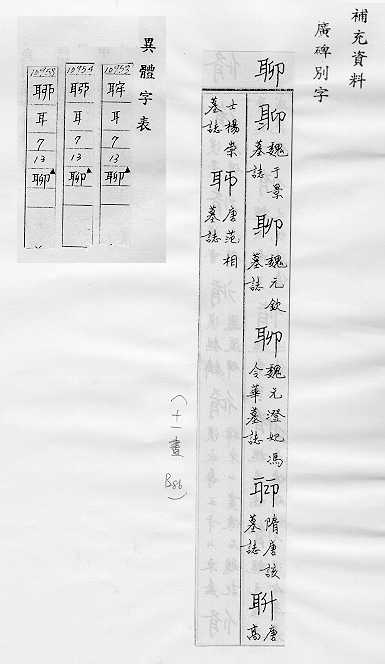 補充資料
廣碑別字
聊
魏于景墓誌
聊
魏元欽墓誌
聊
魏元澄妃馮令華墓誌
隋唐該墓誌
唐高
士楊榮墓誌
唐范相墓誌
(十一畫 B86)
異體字表
10953
耳
7
13
聊▲
10954
耳
7
13
聊▲
10955
耳
7
13
聊▲